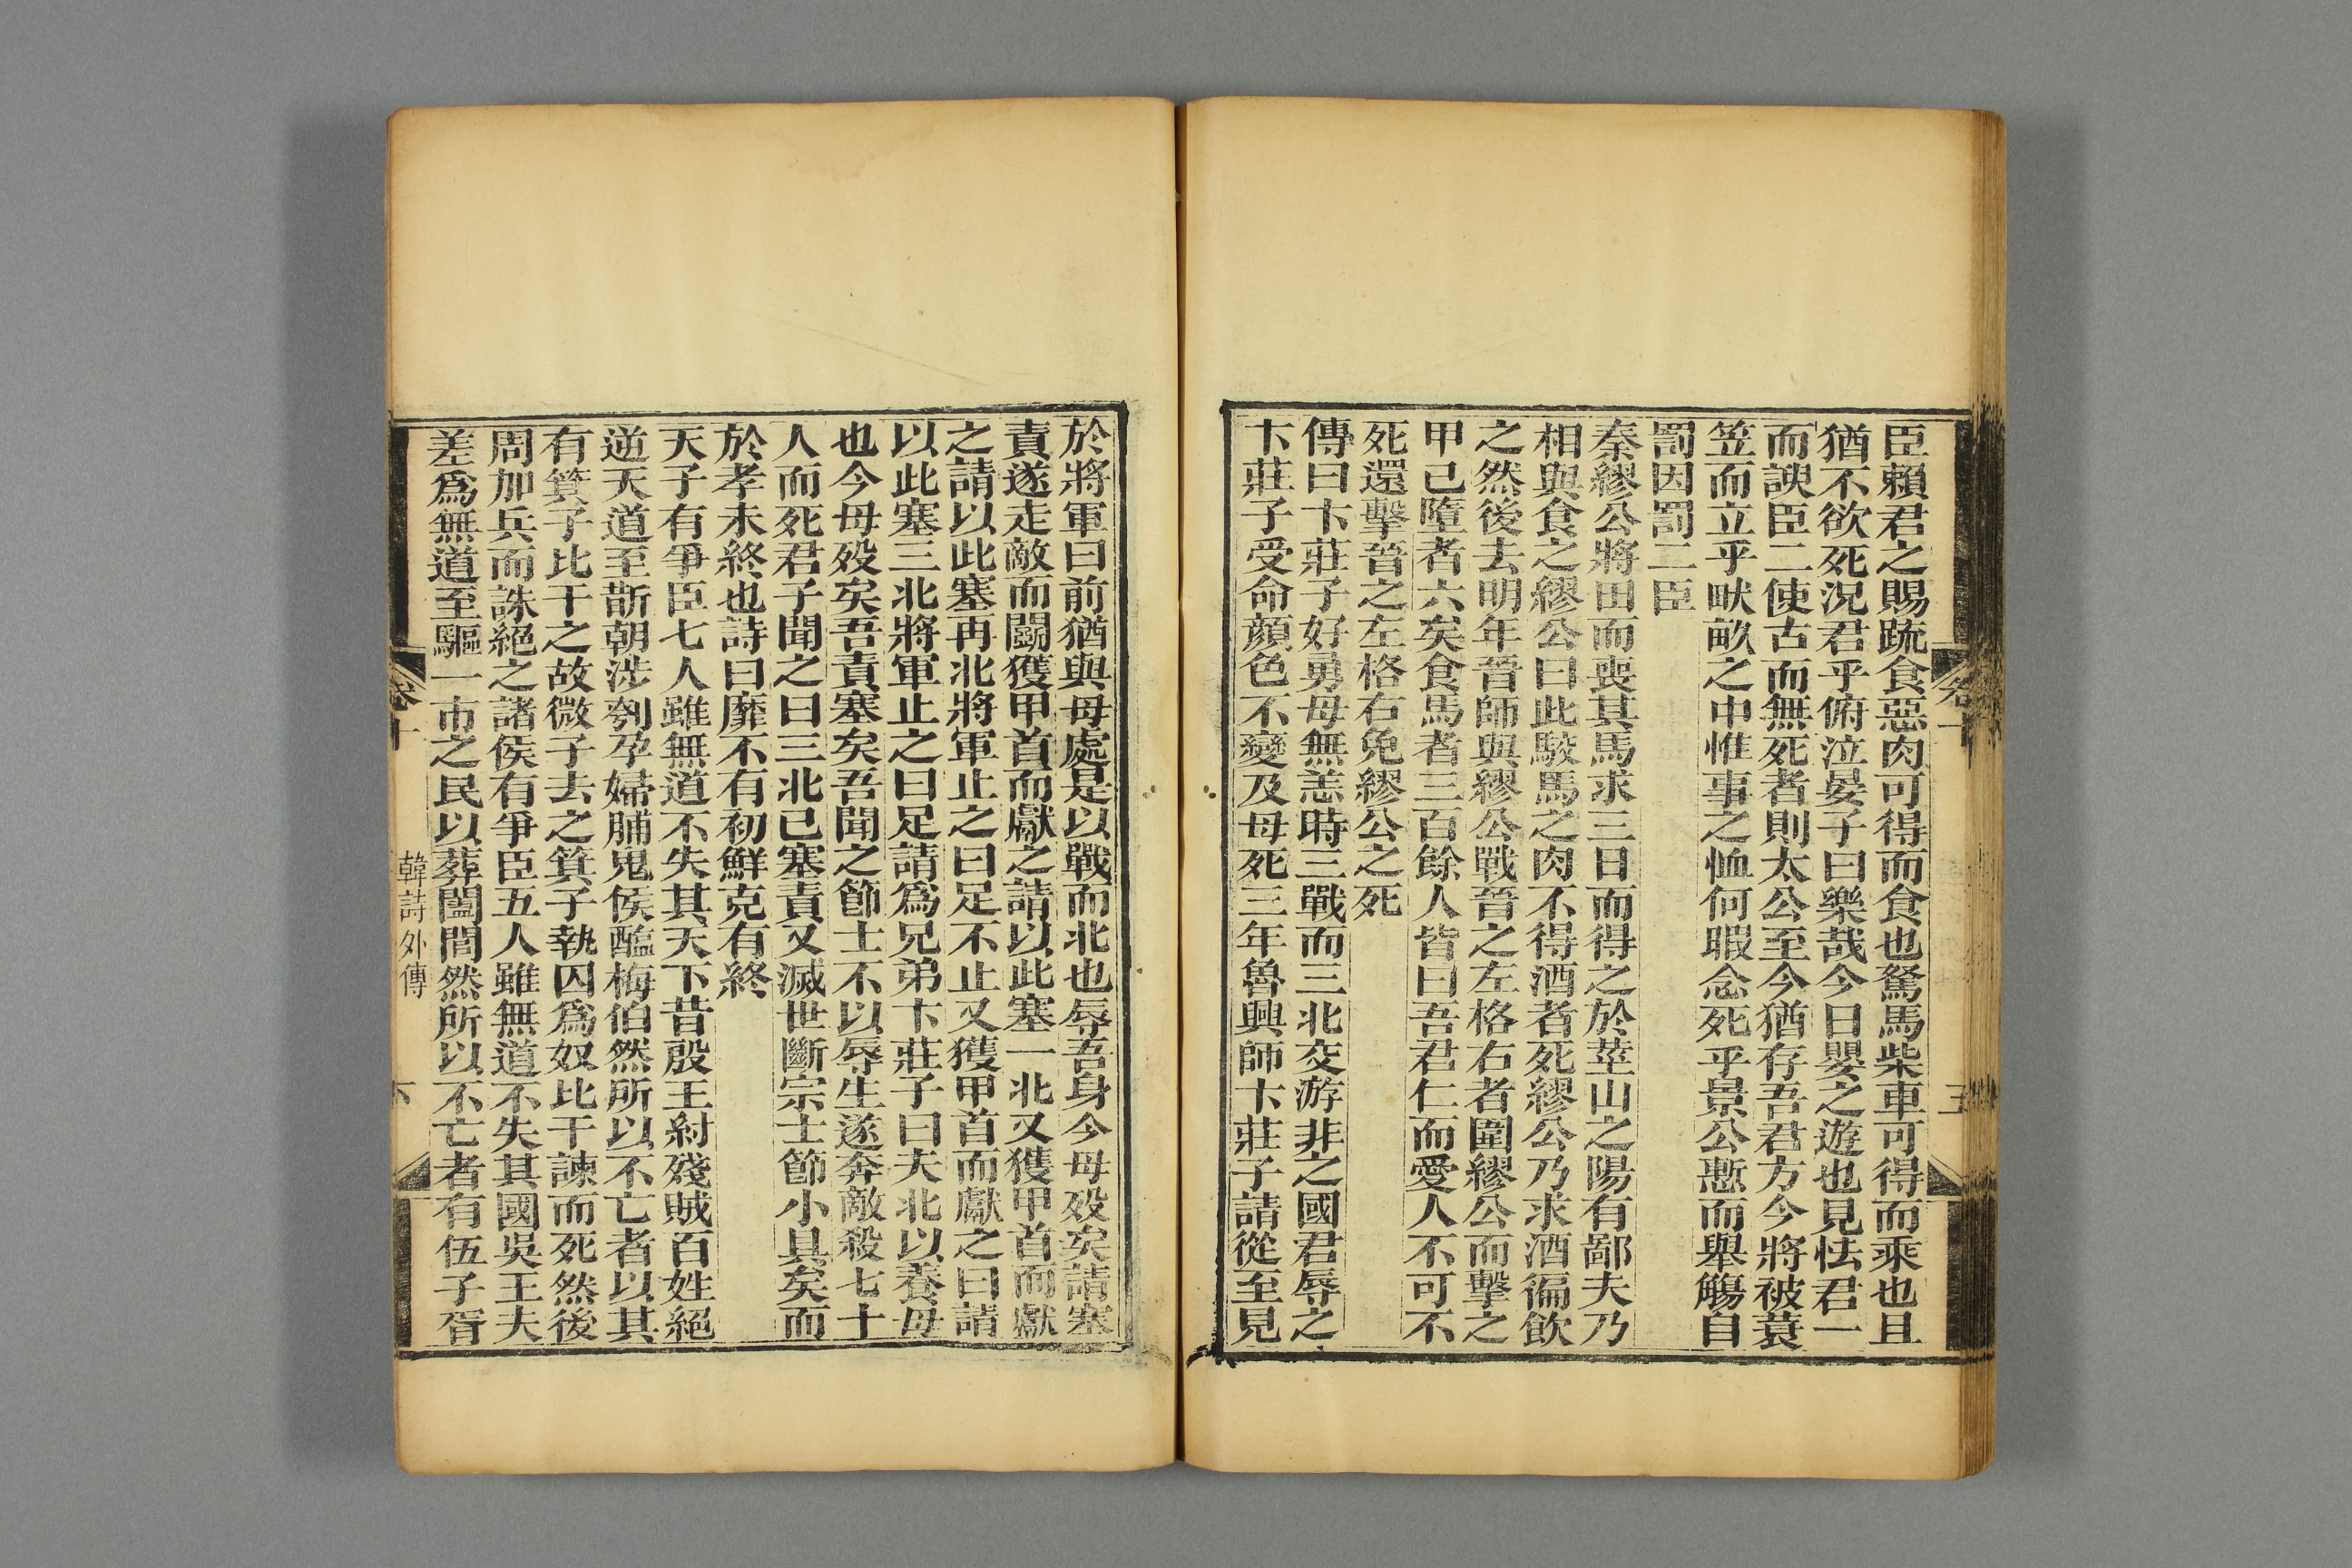 臣賴君之賜疏食惡肉可得而食也駑馬柴車可得而乘也且
猶不欲死況君乎俯泣晏子曰樂哉今日嬰之遊也見怯君一
而諛臣二使古而無死者則太公至今猶存吾君方今將被蓑
笠而立乎畎畝之中惟事之恤何暇念死乎景公慙而舉觴自
罰因罰二臣
秦繆公將田而喪其馬求三日而得之於莖山之陽有鄙夫乃
相與食之繆公曰此駮馬之肉不得酒者死繆公乃求酒徧飲
之然後去明年晉師與繆公戰晉之左格右者圍繆公而擊之
甲已墮者六矣食馬者三百餘人皆曰吾君仁而愛人不可不
死還擊晉之左格右免繆公之死
傳曰卞莊子好勇母無恙時三戰而三北交游非之國君辱之
卞莊子受命顏色不變及母死三年魯興師卞莊子請從至見
卷十
五
於將軍曰前猶與母處是以戰而北也辱吾身今母歿矣請塞
責遂走敵而鬭獲甲首而獻之請以此塞一北又獲甲首而獻
之請以此塞再北將軍止之曰足不止又獲甲首而獻之曰請
以此塞三北將軍止之曰足請爲兄弟卞莊子曰夫北以養母
也今母歿矣吾責塞矣吾聞之節士不以辱生遂奔敵殺七十
人而死君子聞之曰三北已塞責又滅世斷宗士節小具矣而
於孝未終也詩曰靡不有初鮮克有終
天子有爭臣七人雖無道不失其天下昔殷王紂殘賊百姓絕
逆天道至斮朝涉刳孕婦脯鬼侯醢梅伯然所以不亡者以其
有箕子比干之故微子去之箕子執囚爲奴比干諫而死然後
周加兵而誅絕之諸侯有爭臣五人雖無道不失其國吳王夫
差爲無道至驅一市之民以葬闔閭然所以不亡者有伍子胥
卷十
韓詩外傳